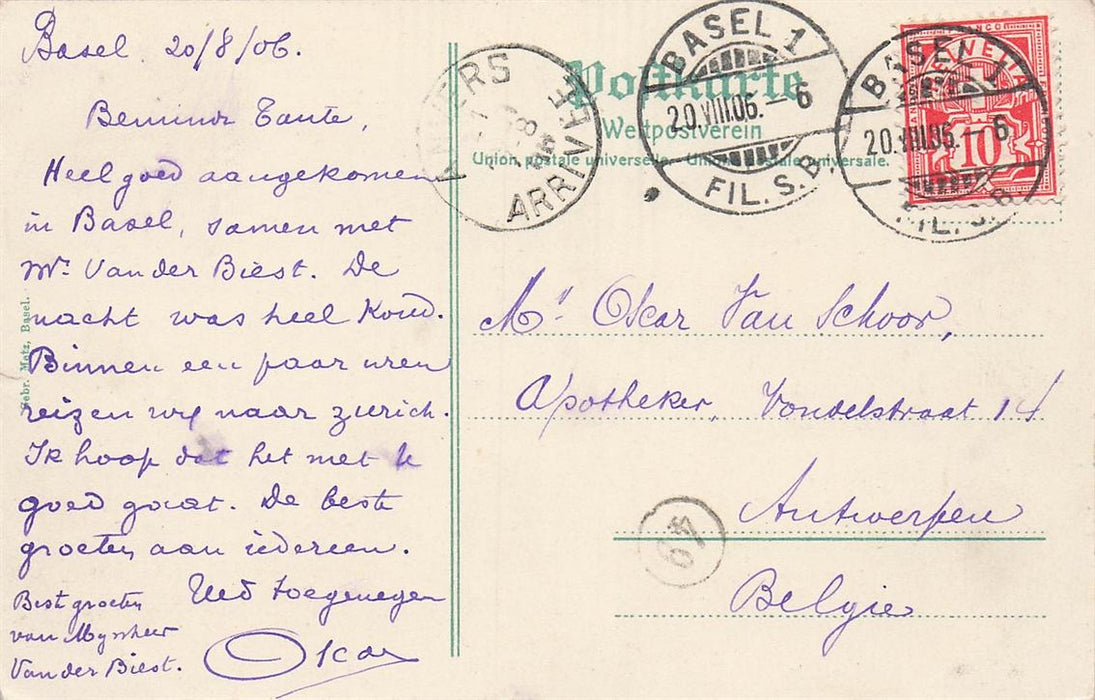 Basel 20/8/06.
Beminde Tante,
Heel goed aangekomen
in Basel, samen met
Mr. Van der Biest. De
nacht was heel Koud.
Binnen een paar uren
reizen wij naar Zurich.
Ik hoop dat het met U
goed gaat. De beste
groeten aan iedereen.
Ued toegenegen
Oscar
Best groeten
van Mynheer
Van der Biest.
Gebr. Metz, Basel.
Postkarte
Weltpostverein
Union postale universelle. Unione postale universale.
ANVERS
ARRIVAGE
BASEL 1
20.VIII.06.–6
FIL. S. B.
BASEL 1
20.VIII.06.–6
FIL. S. B.
FRANCO
HELVETIA
10
Mr. Oscar Van Schoor,
Apotheker, Vondelstraat 14
Antwerpen
België